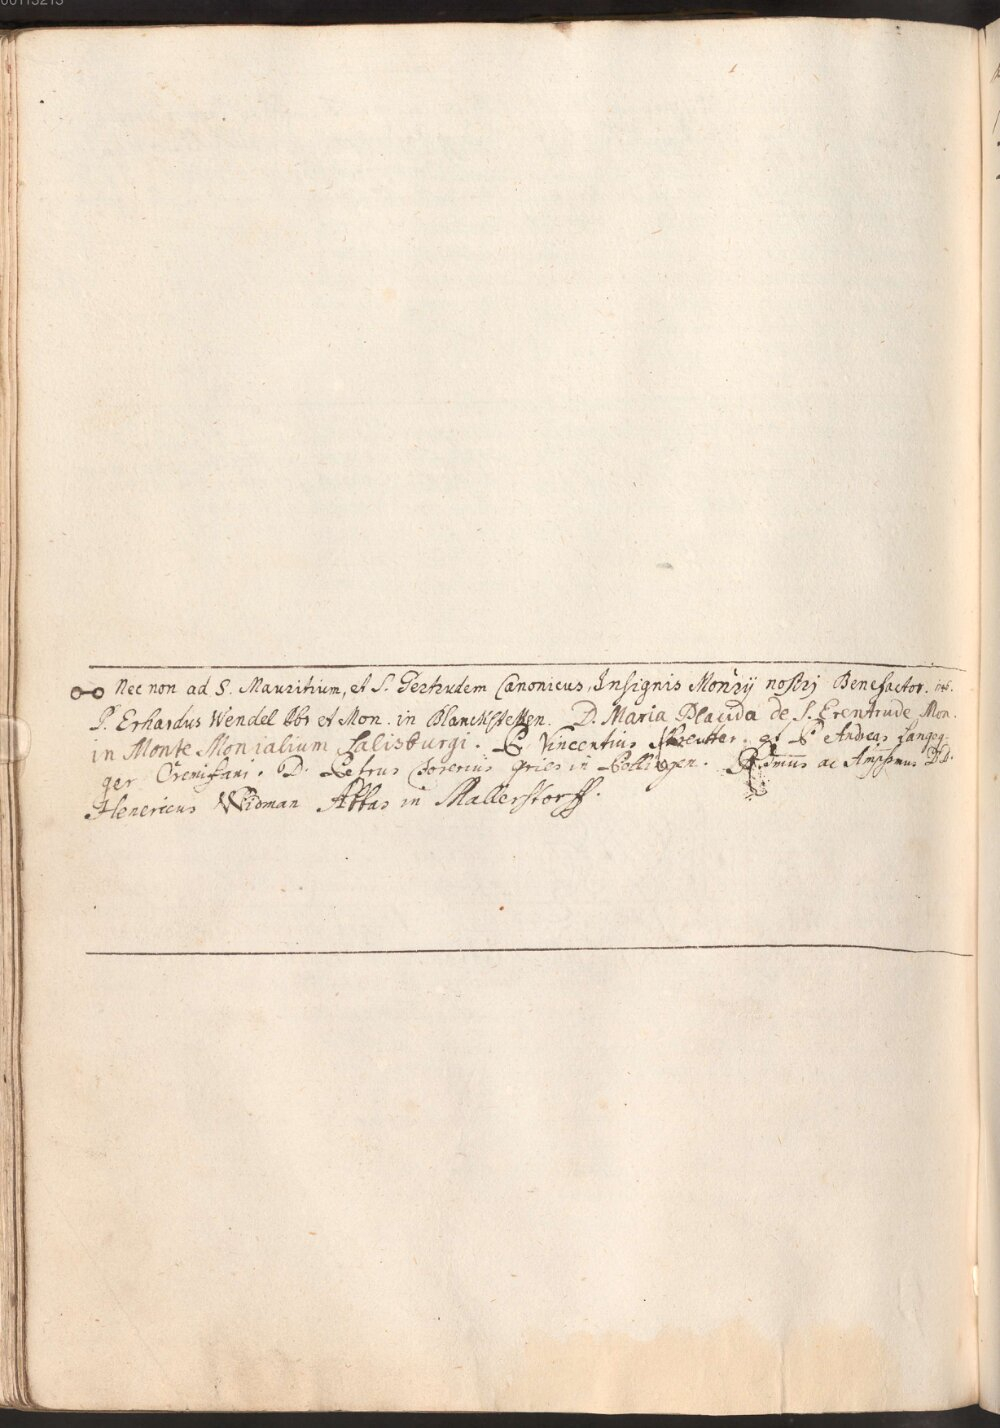 00113213
Nec non ad S. Mauritium, et S. Gertrudem Canonicus, Insignis Monrÿ nostrj Benefactor.
P. Erhardus Wendel Pbr et Mon. in Blanckstetten. D. Maria Placida de S. Erentrude Mon.
in Monte Monialium Salisburgi. P. Vincentius et P. Andreas
ger Cremifani. D. Petrus Gries in Rdmus ac Amplmus DD.
Henericus Widman Abbas in Mallerstorff.